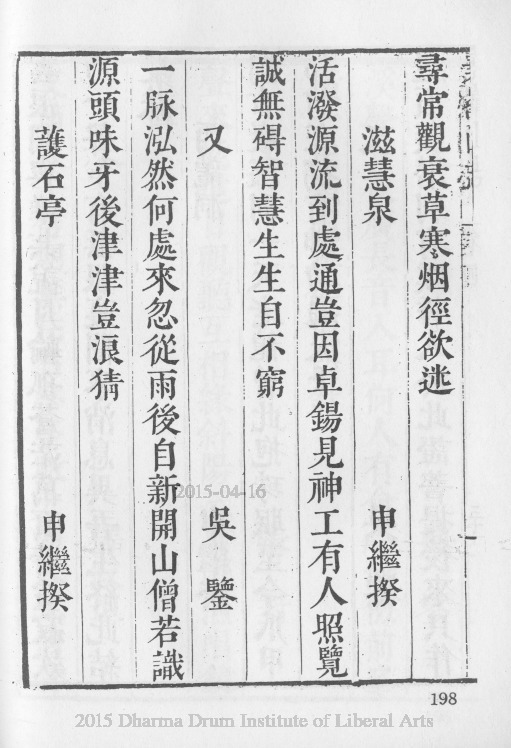 尋常觀衰草寒烟徑欲迷
滋慧泉
申繼揆
活潑源流到處通豈因卓錫見神工有人照覽
誠無碍智慧生生自不窮
又
吳鑒
一脉泓然何處來忽從雨後自新開山僧若識
源頭味牙後津津豈浪猜
護石亭
申繼揆
2015-04-16
198
2015 Dharma Drum Institute of Liberal Arts